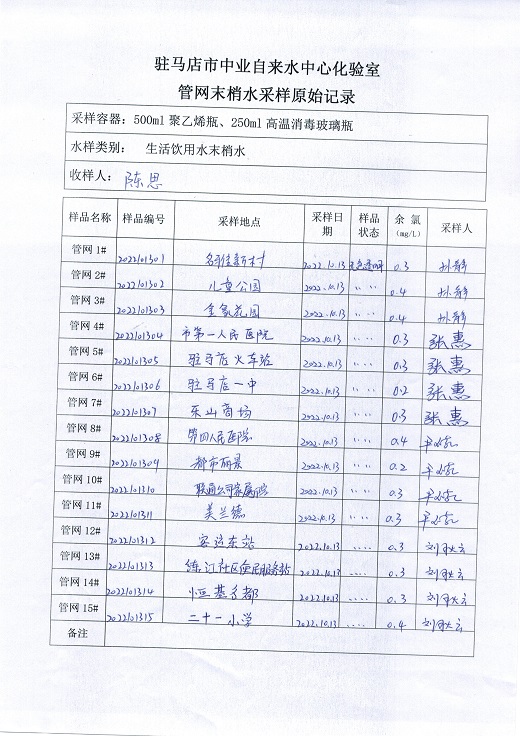 驻马店市中业自来水中心化验室
管网末梢水采样原始记录
采样容器：500ml 聚乙烯瓶、250ml 高温消毒玻璃瓶
水样类别： 生活饮用水末梢水
收样人： 陈思
样品名称 样品编号 采样地点 采样日期 样品状态 余氯(mg/L) 采样人
管网 1# 2022101301 2022.10.13 无色透明 0.3 孙静
管网 2# 2022101302 儿童公园 2022.10.13 .. .. 0.4 孙静
管网 3# 2022101303 金象花园 2022.10.13 .. .. 0.4 孙静
管网 4# 2022101304 市第一人民医院 2022.10.13 .. .. 0.3 张惠
管网 5# 2022101305 驻马店火车站 2022.10.13 .. .. 0.3 张惠
管网 6# 2022101306 驻马店一中 2022.10.13 .. .. 0.2 张惠
管网 7# 2022101307 乐山商场 2022.10.13 .. .. 0.3 张惠
管网 8# 2022101308 第四人民医院 2022.10.13 .. .. 0.4
管网 9# 2022101309 都市丽景 2022.10.13 .. .. 0.2
管网 10# 2022101310 联通公司家属院 2022.10.13 .. .. 0.3
管网 11# 2022101311 美兰德 2022.10.13 .. .. 0.3
管网 12# 2022101312 客运东站 2022.10.13 .. .. 0.3 刘秋云
管网 13# 2022101313 练江社区便民服务站 2022.10.13 .. .. 0.3 刘秋云
管网 14# 2022101314 恒基名都 2022.10.13 .. .. 0.3 刘秋云
管网 15# 2022101315 二十一小学 2022.10.13 .. .. 0.4 刘秋云
备注